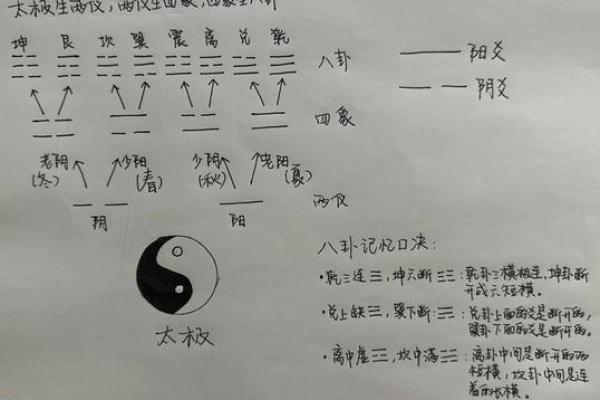 太极生两仪，两仪生四象，四象生八卦
坤 艮 坎 巽 震 离 兑 乾
八卦
阳爻
阴爻
四象
老阴 少阳 少阴 老阳
(冬) (春) (秋) (夏)
阴 阳
两仪
太极
八卦记忆口决：
·乾三连☰，坤六断☷：乾卦三横极连，坤卦断
开成六短横。
·兑上缺☱，巽下断☴：兑卦上面的爻是断开的，
巽卦下面的爻是断开的。
·离中虚☲，坎中满☵：离卦中间是断开的两
短横，坎卦中间是连
着的长横。